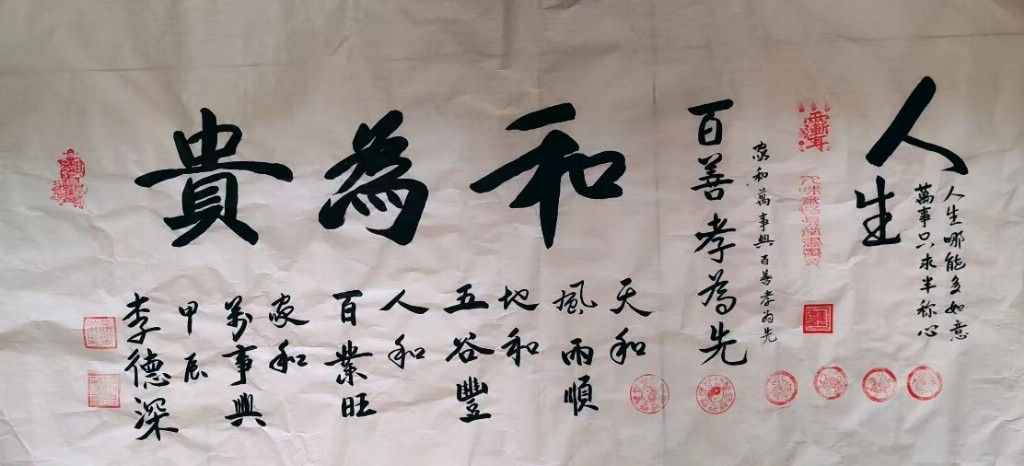 人生
人生哪能多如意
萬事只求半称心
百善孝為先
家和萬事興百善孝为先
和為貴
天和
風雨順
地和
五谷豐
人和
百業旺
家和
萬事興
甲辰
李德深